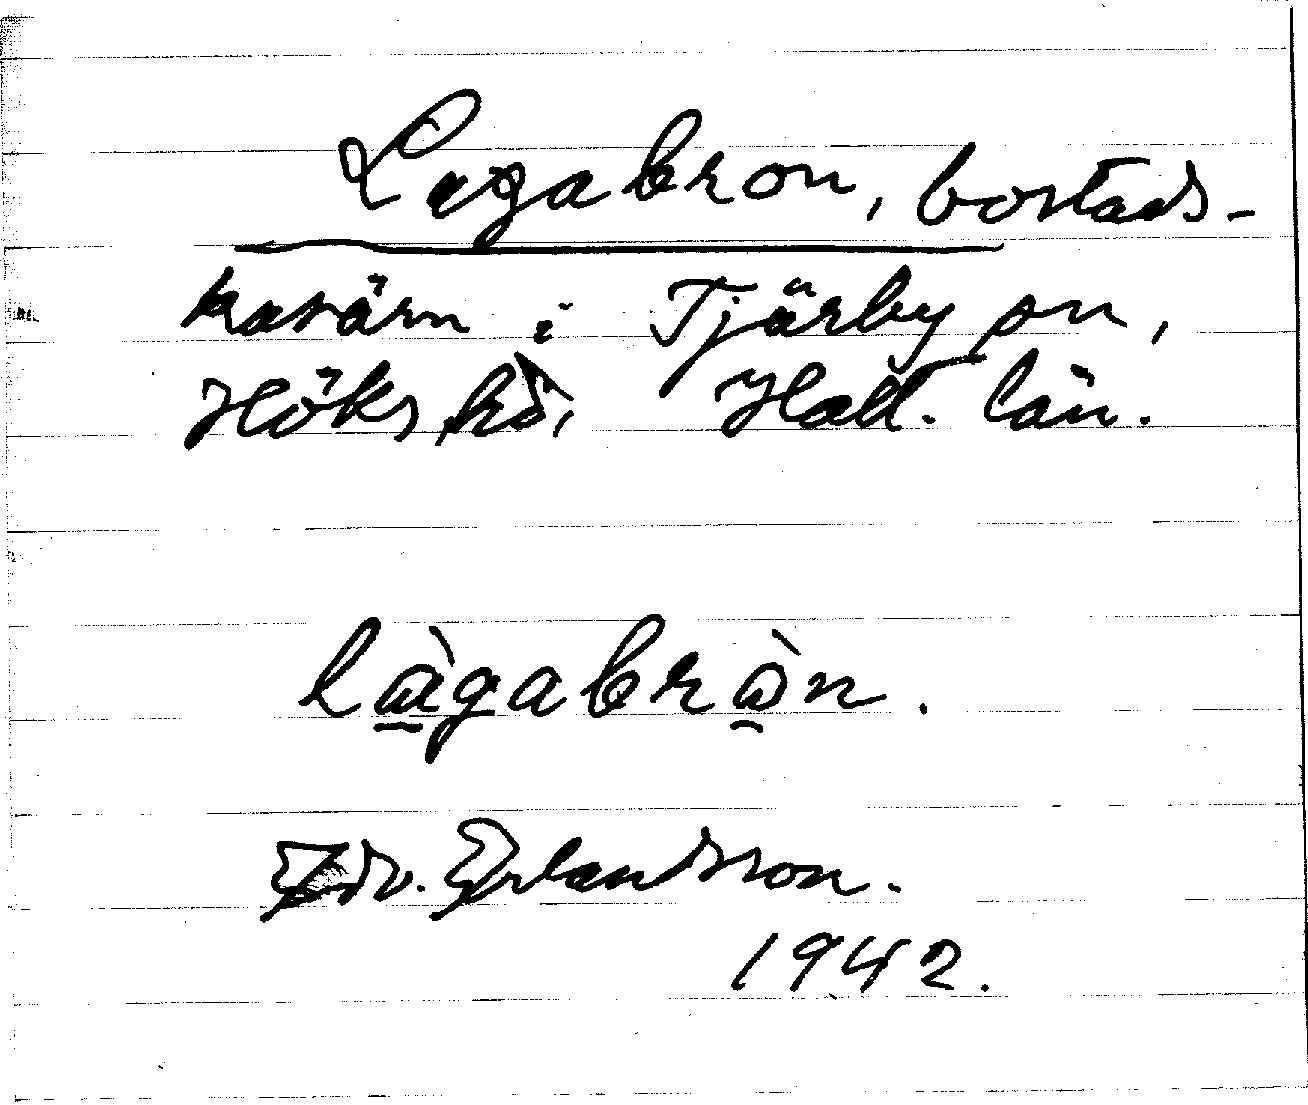 Lagabron, bostads-
kasärn i Tjärby sn,
Höks hd, Hall. län.
làgabròn.
Edv. Erlandsson.
1942.